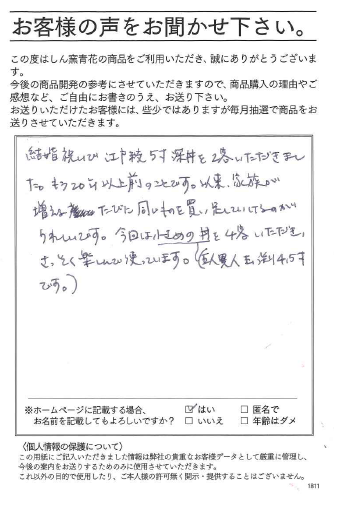 お客様の声をお聞かせ下さい。
この度はしん窯青花の商品をご利用いただき、誠にありがとうございま
す。
今後の商品開発の参考にさせていただきますので、商品購入の理由やご
感想など、ご自由にお書きのうえ、お送り下さい。
お送りいただけたお客様には、些少ではありますが毎月抽選で商品をお
送りさせていただきます。
結婚祝いで江戸絵5寸深丼を2客いただきまし
た。もう20年以上前のことです。以来、家族が
増えるたびに同いものを買い足していけるのが
うれしいです。今回は小さめの丼を4客いただき、
さっそく楽しんで使っています。(異人 4.5寸
です。)
※ホームページに記載する場合、
お名前を記載してもよろしいですか?
☑ はい
□ 匿名で
□ いいえ
□ 年齢はダメ
〈個人情報の保護について〉
この用紙にご記入いただきました情報は弊社の貴重なお客様データとして厳重に管理し、
今後の案内をお送りするためのみに使用させていただきます。
これ以外の目的で使用したり、ご本人様の許可無く開示・提供することはございません。
1811